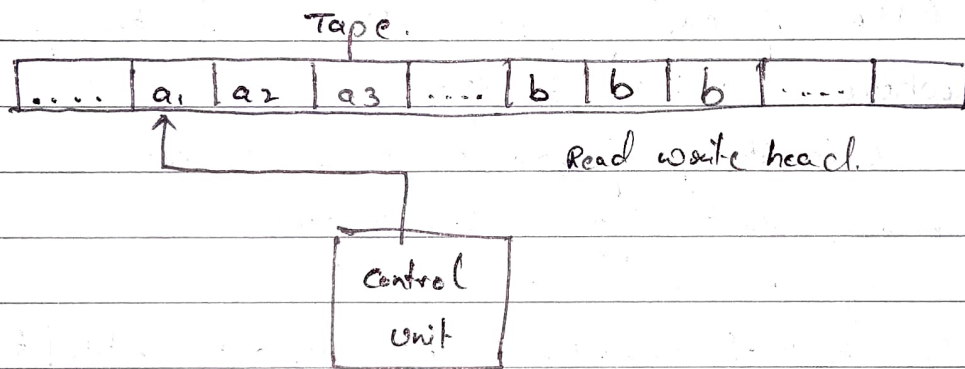 Tape.
.... a1 a2 a3 .... b b b ....
Read write head.
Control
Unit